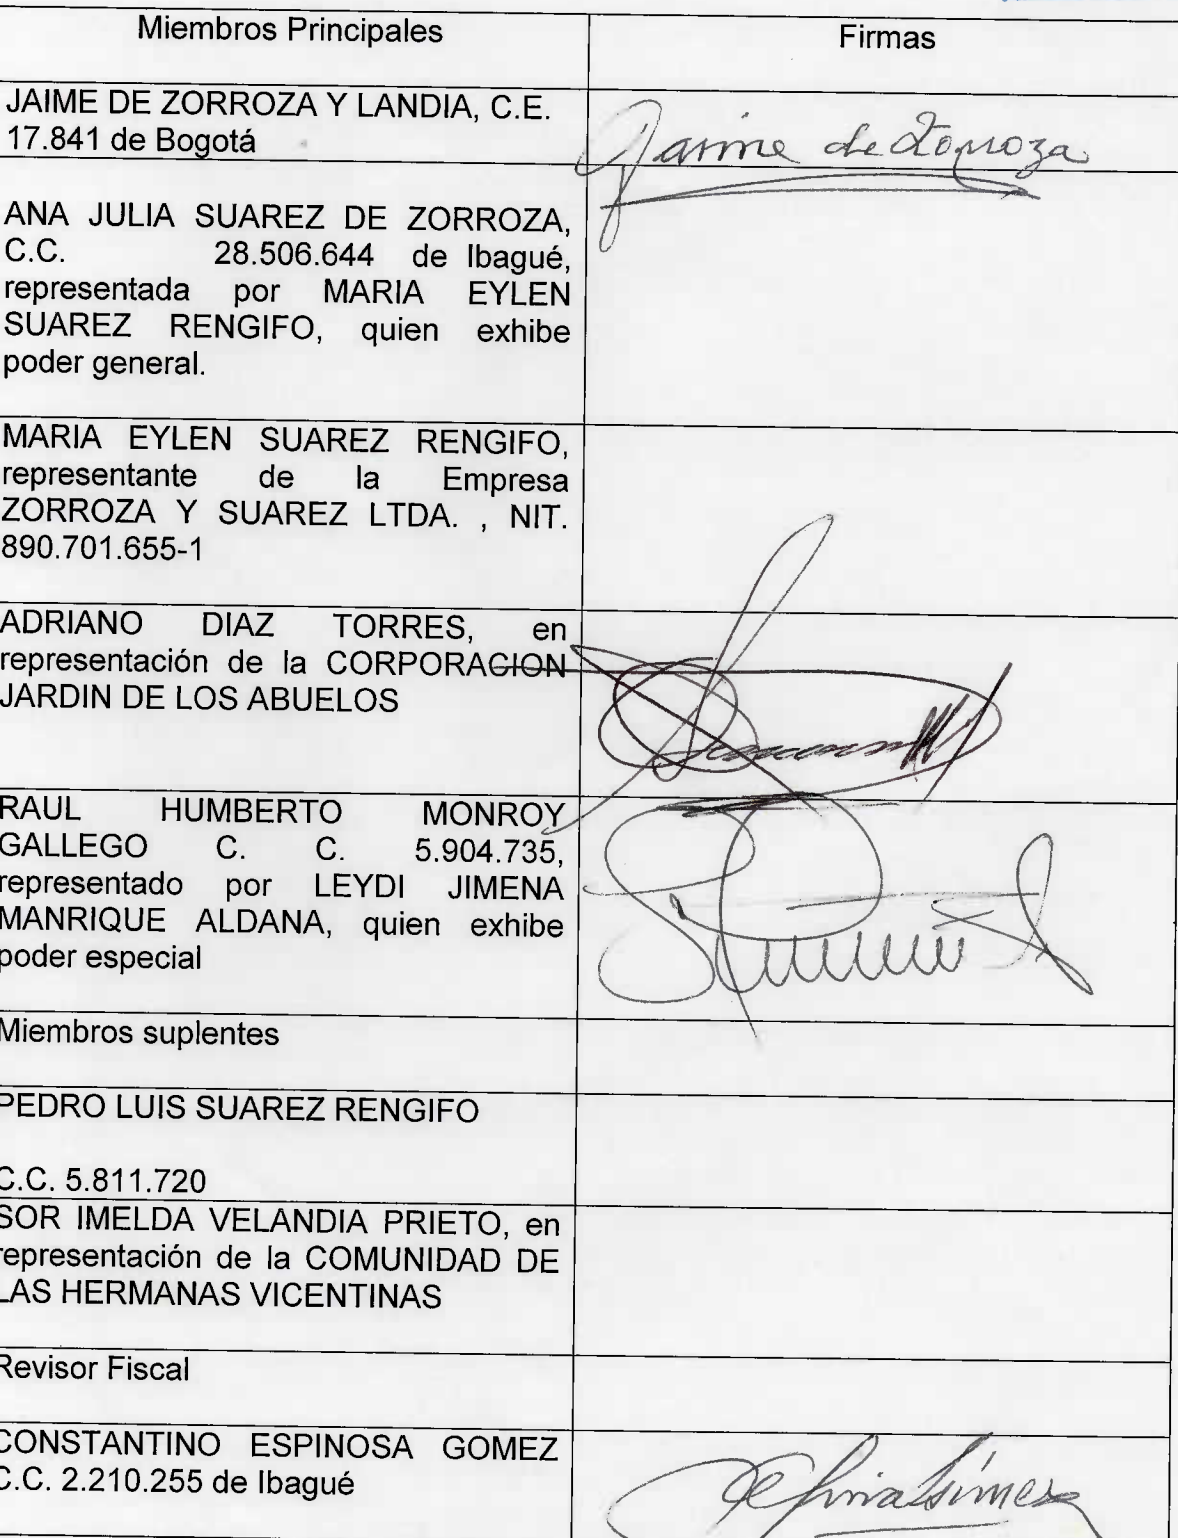 Miembros Principales
Firmas
JAIME DE ZORROZA Y LANDIA, C.E.
17.841 de Bogotá
Jaime de Zorroza
ANA JULIA SUAREZ DE ZORROZA,
C.C. 28.506.644 de Ibagué,
representada por MARIA EYLEN
SUAREZ RENGIFO, quien exhibe
poder general.
MARIA EYLEN SUAREZ RENGIFO,
representante de la Empresa
ZORROZA Y SUAREZ LTDA. , NIT.
890.701.655-1
ADRIANO DIAZ TORRES, en
representación de la CORPORACION
JARDIN DE LOS ABUELOS
RAUL HUMBERTO MONROY
GALLEGO C. C. 5.904.735,
representado por LEYDI JIMENA
MANRIQUE ALDANA, quien exhibe
poder especial
Miembros suplentes
PEDRO LUIS SUAREZ RENGIFO
C.C. 5.811.720
SOR IMELDA VELANDIA PRIETO, en
representación de la COMUNIDAD DE
LAS HERMANAS VICENTINAS
Revisor Fiscal
CONSTANTINO ESPINOSA GOMEZ
C.C. 2.210.255 de Ibagué